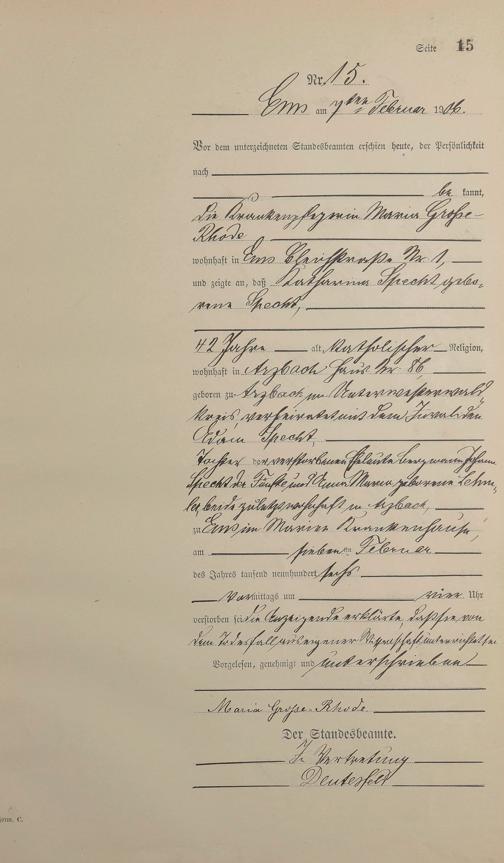 Seite 15
Nr. 15.
Ems am 7ten Februar 1906.
Vor dem unterzeichneten Standesbeamten erschien heute, der Persönlichkeit
nach
be kannt,
die Krankenpflegerin Maria Große-
Rhode
wohnhaft in Ems Bleichstraße Nr 1,
und zeigte an, daß Katharina Specht gebo-
rene Specht,
42 Jahre alt, katholischer Religion,
wohnhaft in Arzbach Haus Nr 86,
geboren zu Arzbach im Unterwesterwald-
kreis verheiratet mit dem Invaliden
Adam Specht,
Tochter der verstorbenen Eheleute Bergmann Johann
Specht der Fünfte und Anna Maria geborene
beide zuletzt wohnhaft in Arzbach,
zu Ems im Marien Krankenhause,
am sieben ten Februar
des Jahres tausend neunhundert sechs
Vor mittags um vier Uhr
verstorben sei die Anzeigende erklärte, daß sie von
dem Todesfall aus eigener Wissenschaft unterrichtet sei
Vorgelesen, genehmigt und unterschrieben
Maria Große-Rhode.
Der Standesbeamte.
In Vertretung
C.